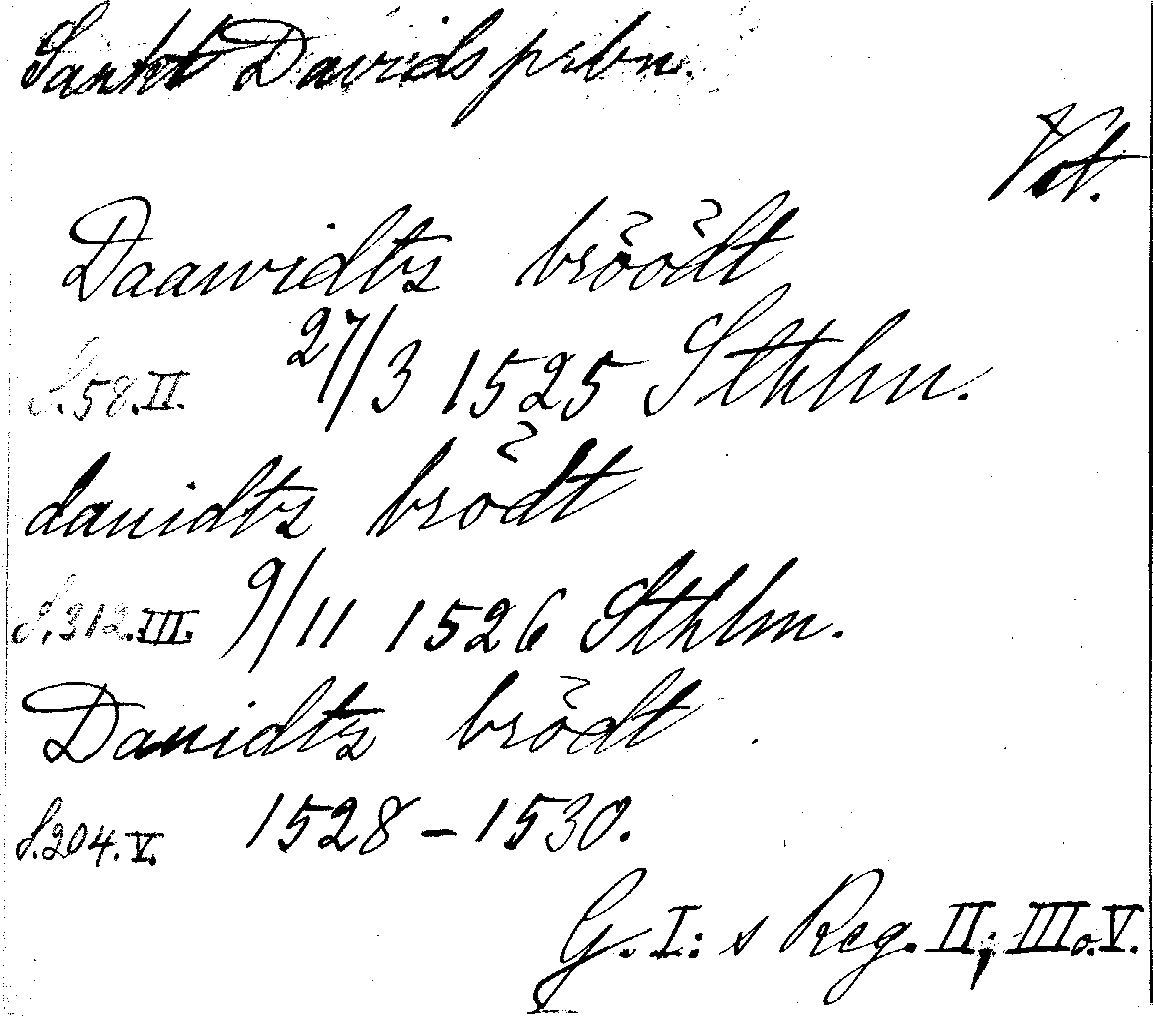 Sankt Davids prbn.
Vet.
Daawidtz bröödt
S.58.II. 27/3 1525 Sthlm.
dauidtz brödt
S.312.III. 9/11 1526 Sthlm.
Dauidtz brödt
S.204.V. 1528-1530.
G. I:s Reg. II; III o. V.